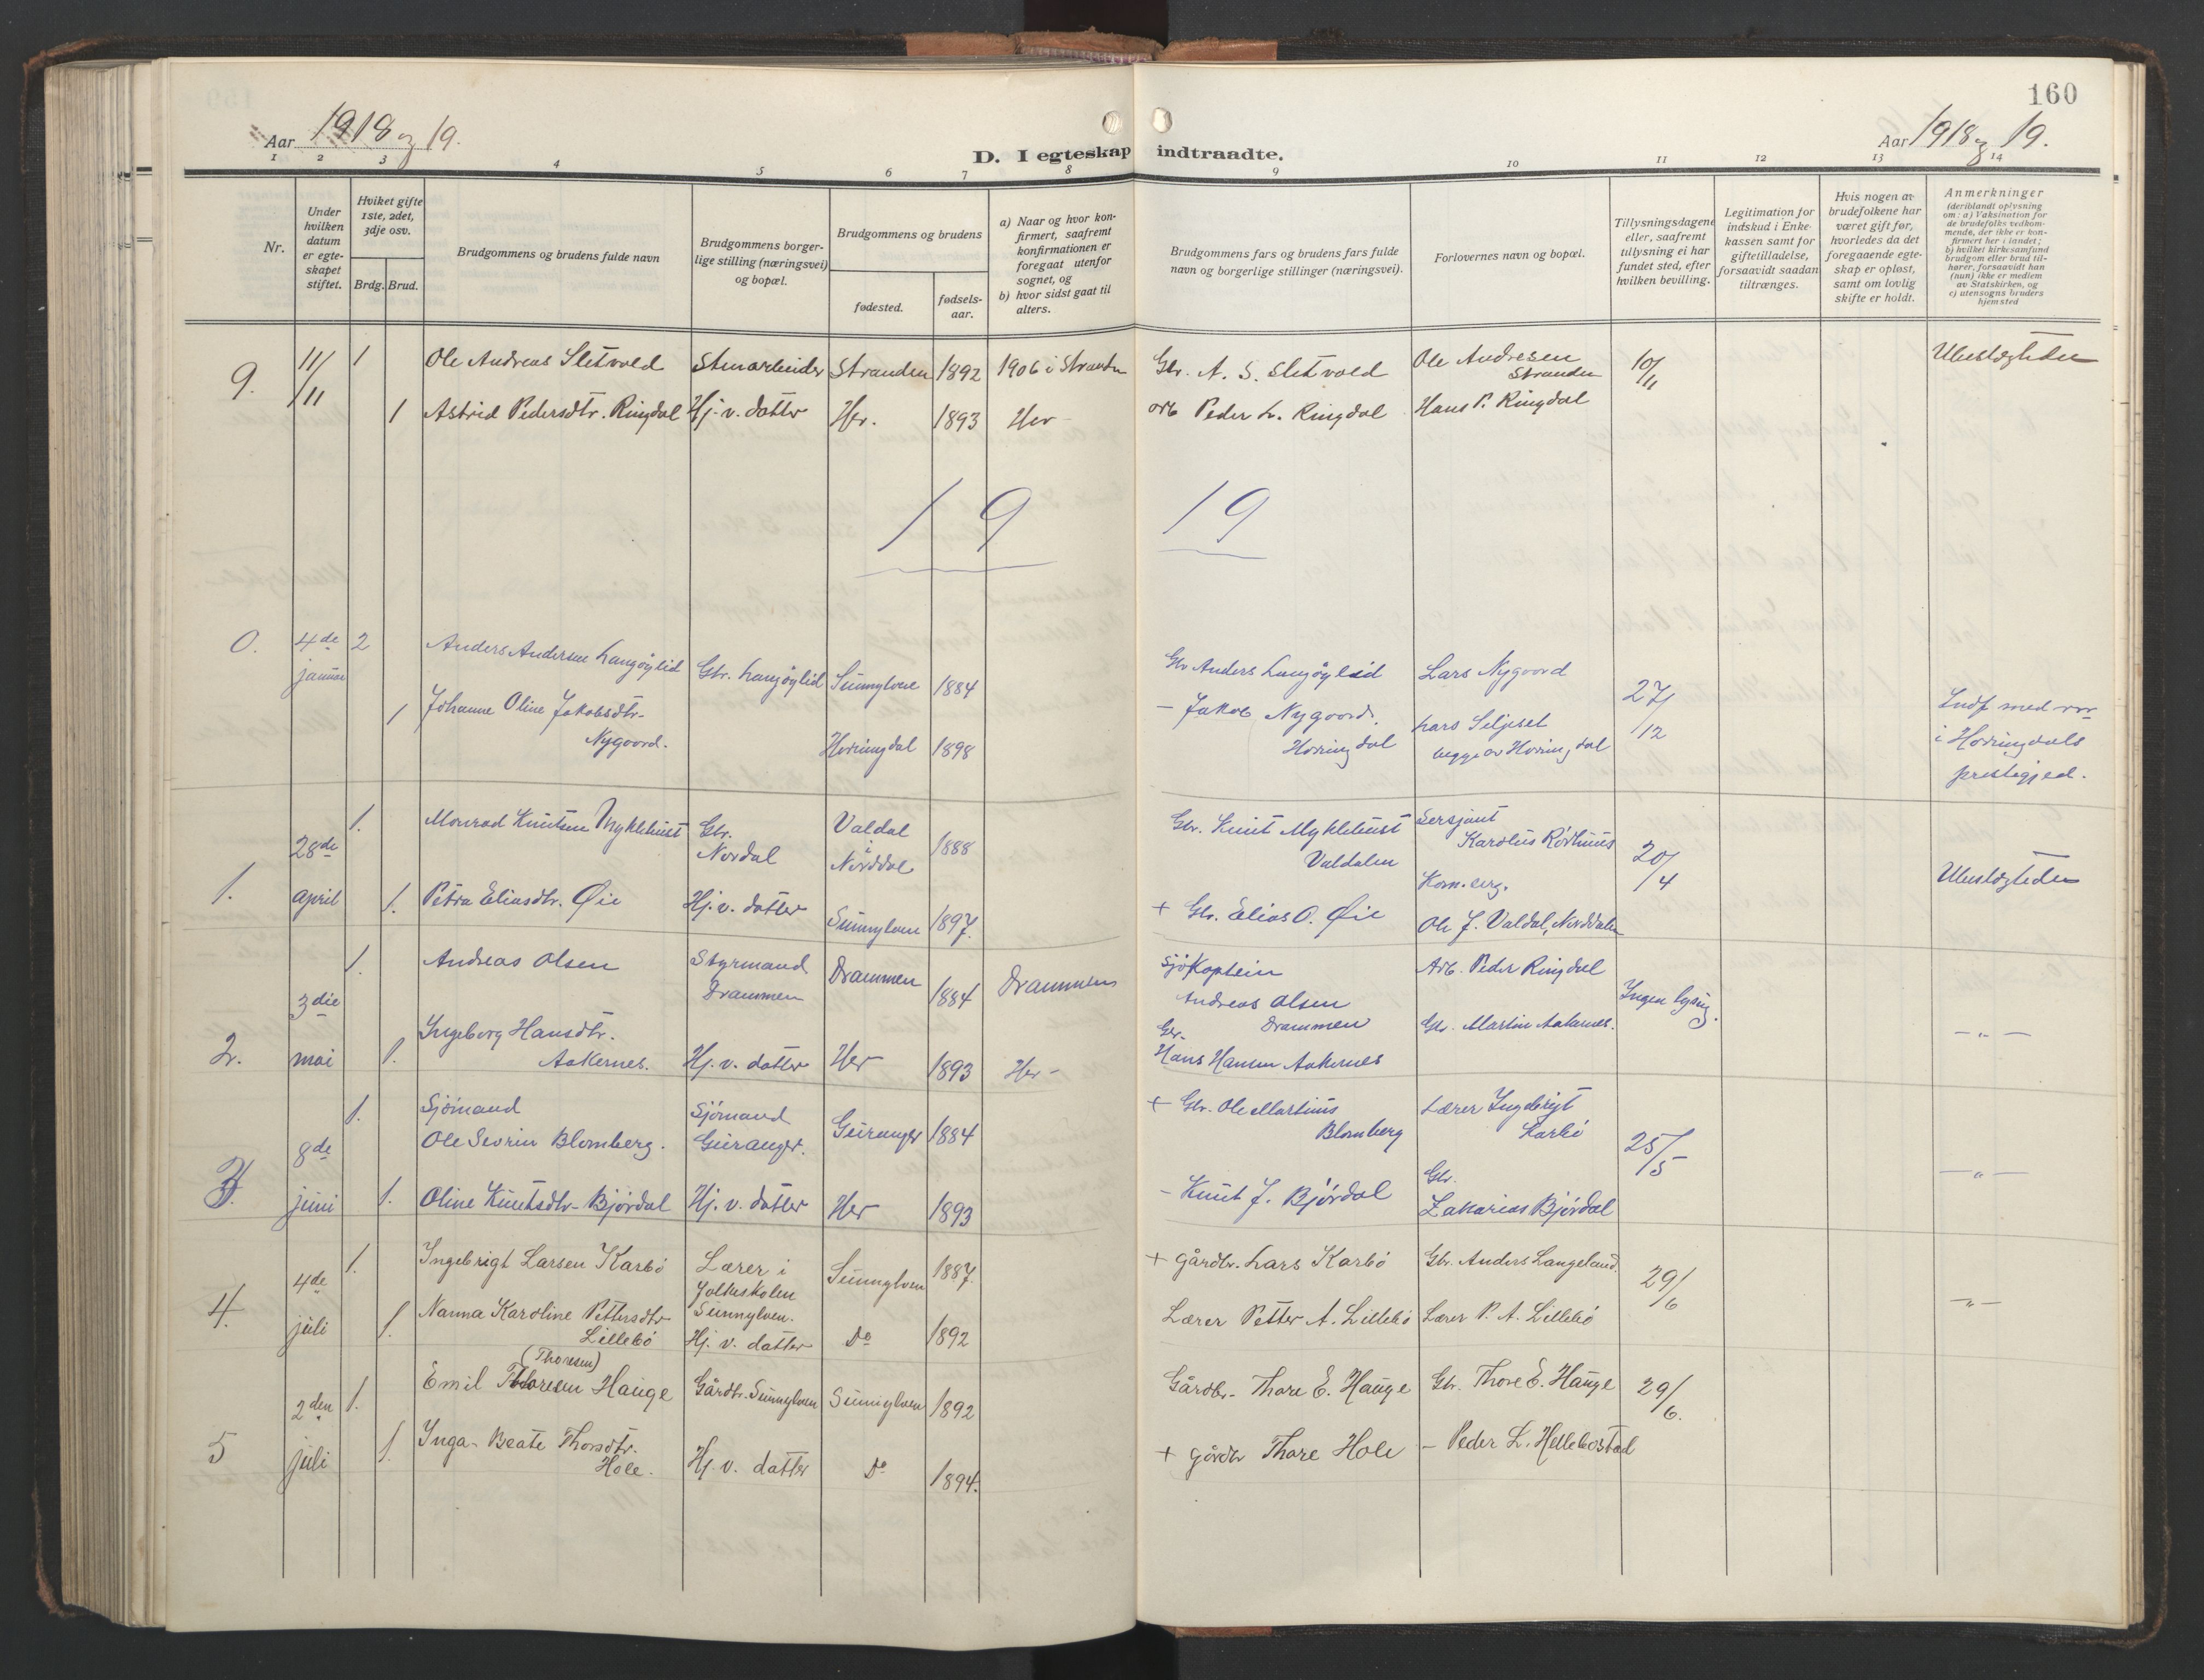 160
Aar 1918 og 19.
Aar 1918 og 19.
D. I egteskap indtraadte.
1 2 3 4 5 6 7 8 9 10 11 12 13 14
Nr.
Under hvilken datum er egte-skapet stiftet.
Hviket gifte 1ste, 2det, 3dje osv.
Brdg. Brud.
Brudgommens og brudens fulde navn
Brudgommens borger-lige stilling (næringsvei) og bopæl.
Brudgommens og brudens
fødested.
fødsels-aar.
a) Naar og hvor kon-firmert, saafremt konfirmationen er foregaat utenfor sognet, og
b) hvor sidst gaat til alters.
Brudgommens fars og brudens fars fulde navn og borgerlige stillinger (næringsvei).
Forlovernes navn og bopæl.
Tillysningsdagene eller, saafremt tillysning ei har fundet sted, efter hvilken bevilling.
Legitimation for indskud i Enke-kassen samt for giftetilladelse, forsaavidt saadan tiltrænges.
Hvis nogen av brudefolkene har været gift før, hvorledes da det foregaaende egte-skap er opløst, samt om lovlig skifte er holdt.
Anmerkninger (deriblandt oplysning om: a) Vaksination for de brudefolks vedkom-mende, der ikke er kon-firmert her i landet; b) hvilket kirkesamfund brudgom eller brud til-hører, forsaavidt han (hun) ikke er medlem av Statskirken, og c) utensogns bruders hjemsted
9. 11/11 1 Ole Andreas Sletvold Stenarbeider Stranden 1892 1906 i Stranden Gbr. A. S. Sletvold Ole Andresen Stranden 10/11 Ubeslægtede
1 Astrid Pedersdtr. Ringdal Hj. v. datter Her. 1893 Her Arb Peder L. Ringdal Hans P. Ringdal
19 19
0. 4de januar 2 Anders Andersen Langøylid Gbr. Langøylid Sunnylven 1884 Gbr Anders Langøylid Lars Nygoord 27/12
1 Johanne Oline Jakobsdtr. Nygoord. Horningdal 1898 - Jakob Nygoord. Horningdal Lars Seljeset begge av Horningdal Indf med i Horningdals prestegjed.
1. 28de april 1. Monrad Knutsen Myklebust Gbr. Nordal Valdal i Norddal 1888 Gbr. Knut Myklebust Valdalen Sersjant Karolus Rørhuus Korn.berg. 20/4 Ubeslægtede
1. Petra Eliasdtr. Øie Hj. v. datter Sunnylven 1897. + Gbr. Elias O. Øie Ole J. Valdal, Norddalen
2. 3die mai 1. Andreas Olsen Styrmand Drammen Drammen 1884 Drammen Sjökaptein Andreas Olsen Drammen Arb. Peder Ringdal Ingen lysing. - " -
1. Ingeborg Hansdtr. Aakernes. Hj. v. datter Her 1893 Her - Gbr. Hans Hansen Aakernes Gbr. Martin Aakernes.
3. 8de juni 1. Sjömand Ole Sevrin Blomberg. Sjömand Geiranger. Geiranger 1884 + Gbr. Ole Martinus Blomberg Lærer Ingebrigt Karbö 25/5 - " -
1. Oline Knutsdtr. Bjørdal Hj. v. datter Her 1893 - Knut J. Bjørdal Gbr. Zakarias Bjørdal
4. 4de juli 1. Ingebrigt Larsen Karbö Lærer i folkeskolen Sunnylven. Sunnylven 1887. + Gårdbr. Lars Karbö Gbr. Anders Langeland. 29/6 - " -
1. Nanna Karoline Pettersdtr Lillebö Hj. v. datter Do 1892 Lærer Petter A. Lillebö Lærer P. A. Lillebö
5 2den juli 1. Emil Thoresen (Thoresen) Hauge Gårdbr. Sunnylven Sunnylven 1892 Gårdbr. Thore E. Hauge Gbr. Thore E. Hauge 29/6.
1. Inga Beate Thorsdtr. Hole. Hj. v. datter Do 1894. + gårdbr Thore Hole - Peder L. Hellebostad